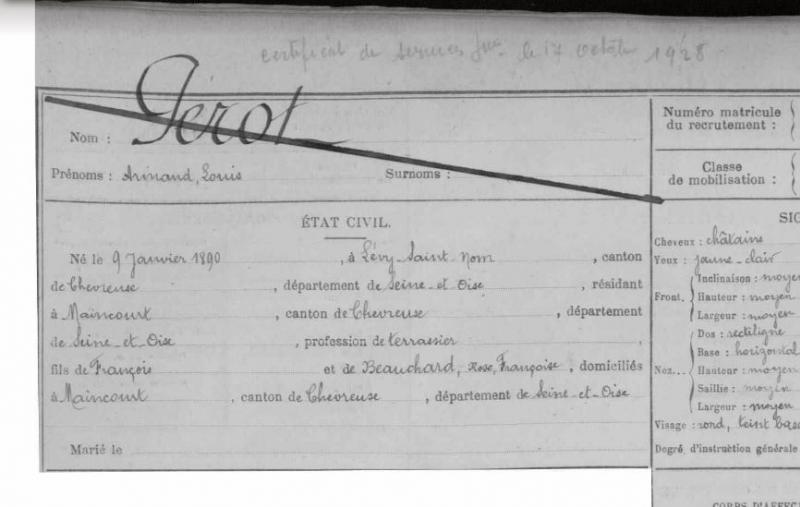 certificat de services le 17 octobre 1928
Nom : Pérot
Prénoms : Armand, Louis Surnoms :
ÉTAT CIVIL.
Né le 9 Janvier 1890, à Lévy-Saint Nom, canton
de Chevreuse, département de Seine-et-Oise, résidant
à Maincourt, canton de Chevreuse, département
de Seine et Oise, profession de terrassier,
fils de François et de Beauchard, Rose, Françoise, domiciliés
à Maincourt, canton de Chevreuse, département de Seine-et-Oise
Marié le
Numéro matricule
du recrutement :
Classe
de mobilisation :
SIG
Cheveux : châtains
Yeux : jaune-clair
Front. Inclinaison : moyen
Hauteur : moyen
Largeur : moyen
Nez... Dos : rectiligne
Base : horizontal
Hauteur : moyen
Saillie : moyen
Largeur : moyen
Visage : rond, teint
Degré d'instruction générale
CORPS D'AFFEC